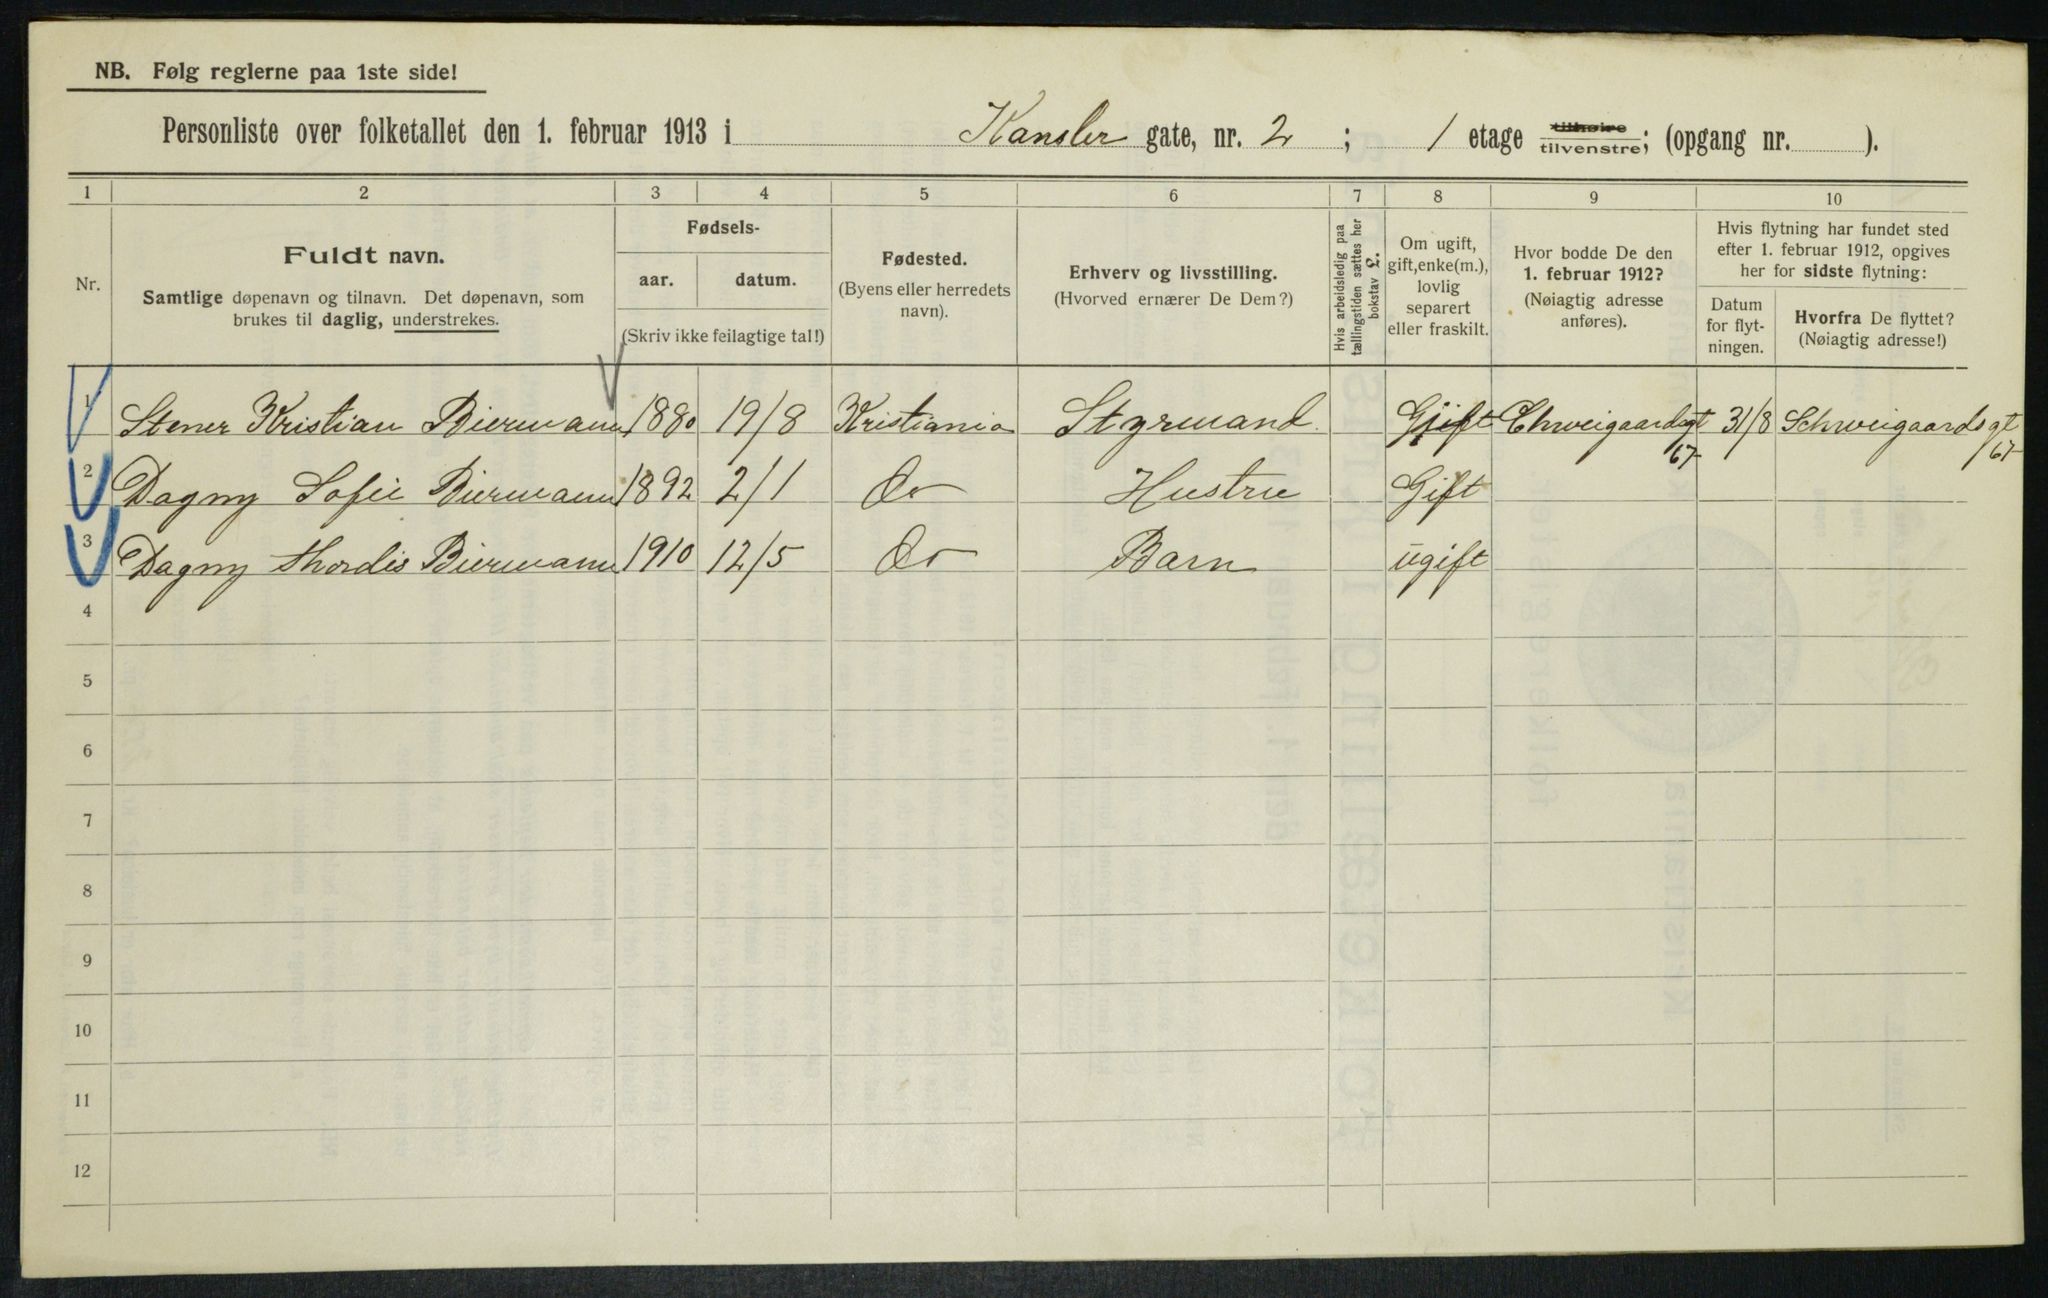 NB. Følg reglerne paa 1ste side!
Personliste over folketallet den 1. februar 1913 i Kansler gate, nr. 2 ; 1 etage tilhøire tilvenstre; (opgang nr. ).
1 2 3 4 5 6 7 8 9 10
Nr.
Fuldt navn.
Samtlige døpenavn og tilnavn. Det døpenavn, som
brukes til daglig, understrekes.
Fødsels-
aar. datum.
(Skriv ikke feilagtige tal!)
Fødested.
(Byens eller herredets
navn).
Erhverv og livsstilling.
(Hvorved ernærer De Dem?)
Hvis arbeidsledig paa
tællingstiden sættes her
bokstav L.
Om ugift,
gift, enke(m.),
lovlig
separert
eller fraskilt.
Hvor bodde De den
1. februar 1912?
(Nøiagtig adresse
anføres).
Hvis flytning har fundet sted
efter 1. februar 1912, opgives
her for sidste flytning:
Datum
for flyt-
ningen.
Hvorfra De flyttet?
(Nøiagtig adresse!)
1 Stener Kristian Biermann 1880 19/8 Kristiania Styrmand. Gift Chweigaardsgt 67 31/8 Schweigaardsgt 67
2 Dagny Sofie Biermann 1892 2/1 Do Hustru Gift
3 Dagny Thordis Biermann 1910 12/5 Do Barn ugift
4
5
6
7
8
9
10
11
12